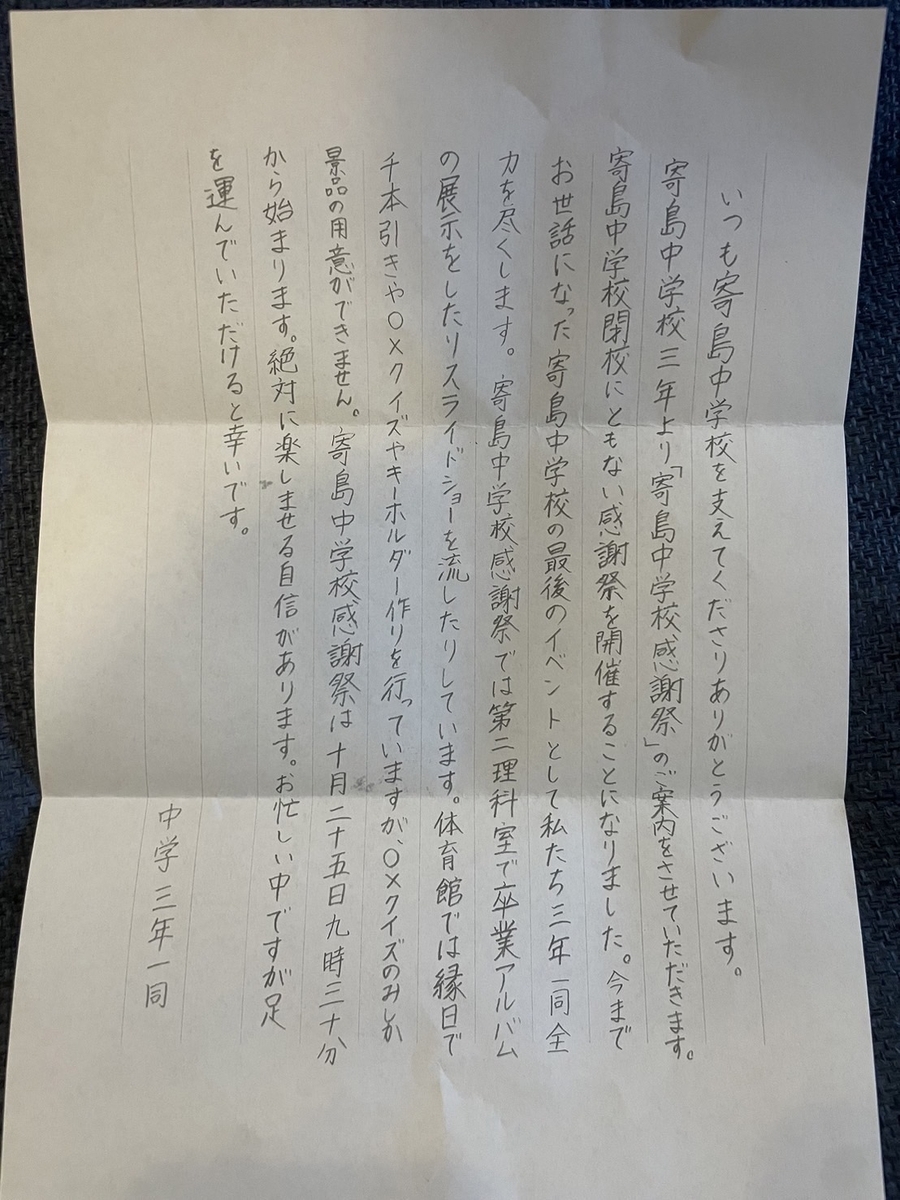 いつも寄島中学校を支えてくださりありがとうございます。
寄島中学校三年より「寄島中学校感謝祭」のご案内をさせていただきます。
寄島中学校閉校にともない感謝祭を開催することになりました。今まで
お世話になった寄島中学校の最後のイベントとして私たち三年一同全
力を尽くします。寄島中学校感謝祭では第二理科室で卒業アルバム
の展示をしたりスライドショーを流したりしています。体育館では縁日で
千本引きや〇×クイズやキーホルダー作りを行っていますが、〇×クイズのみしか
景品の用意ができません。寄島中学校感謝祭は十月二十五日九時三十分
から始まります。絶対に楽しませる自信があります。お忙しい中ですが足
を運んでいただけると幸いです。
中学三年一同